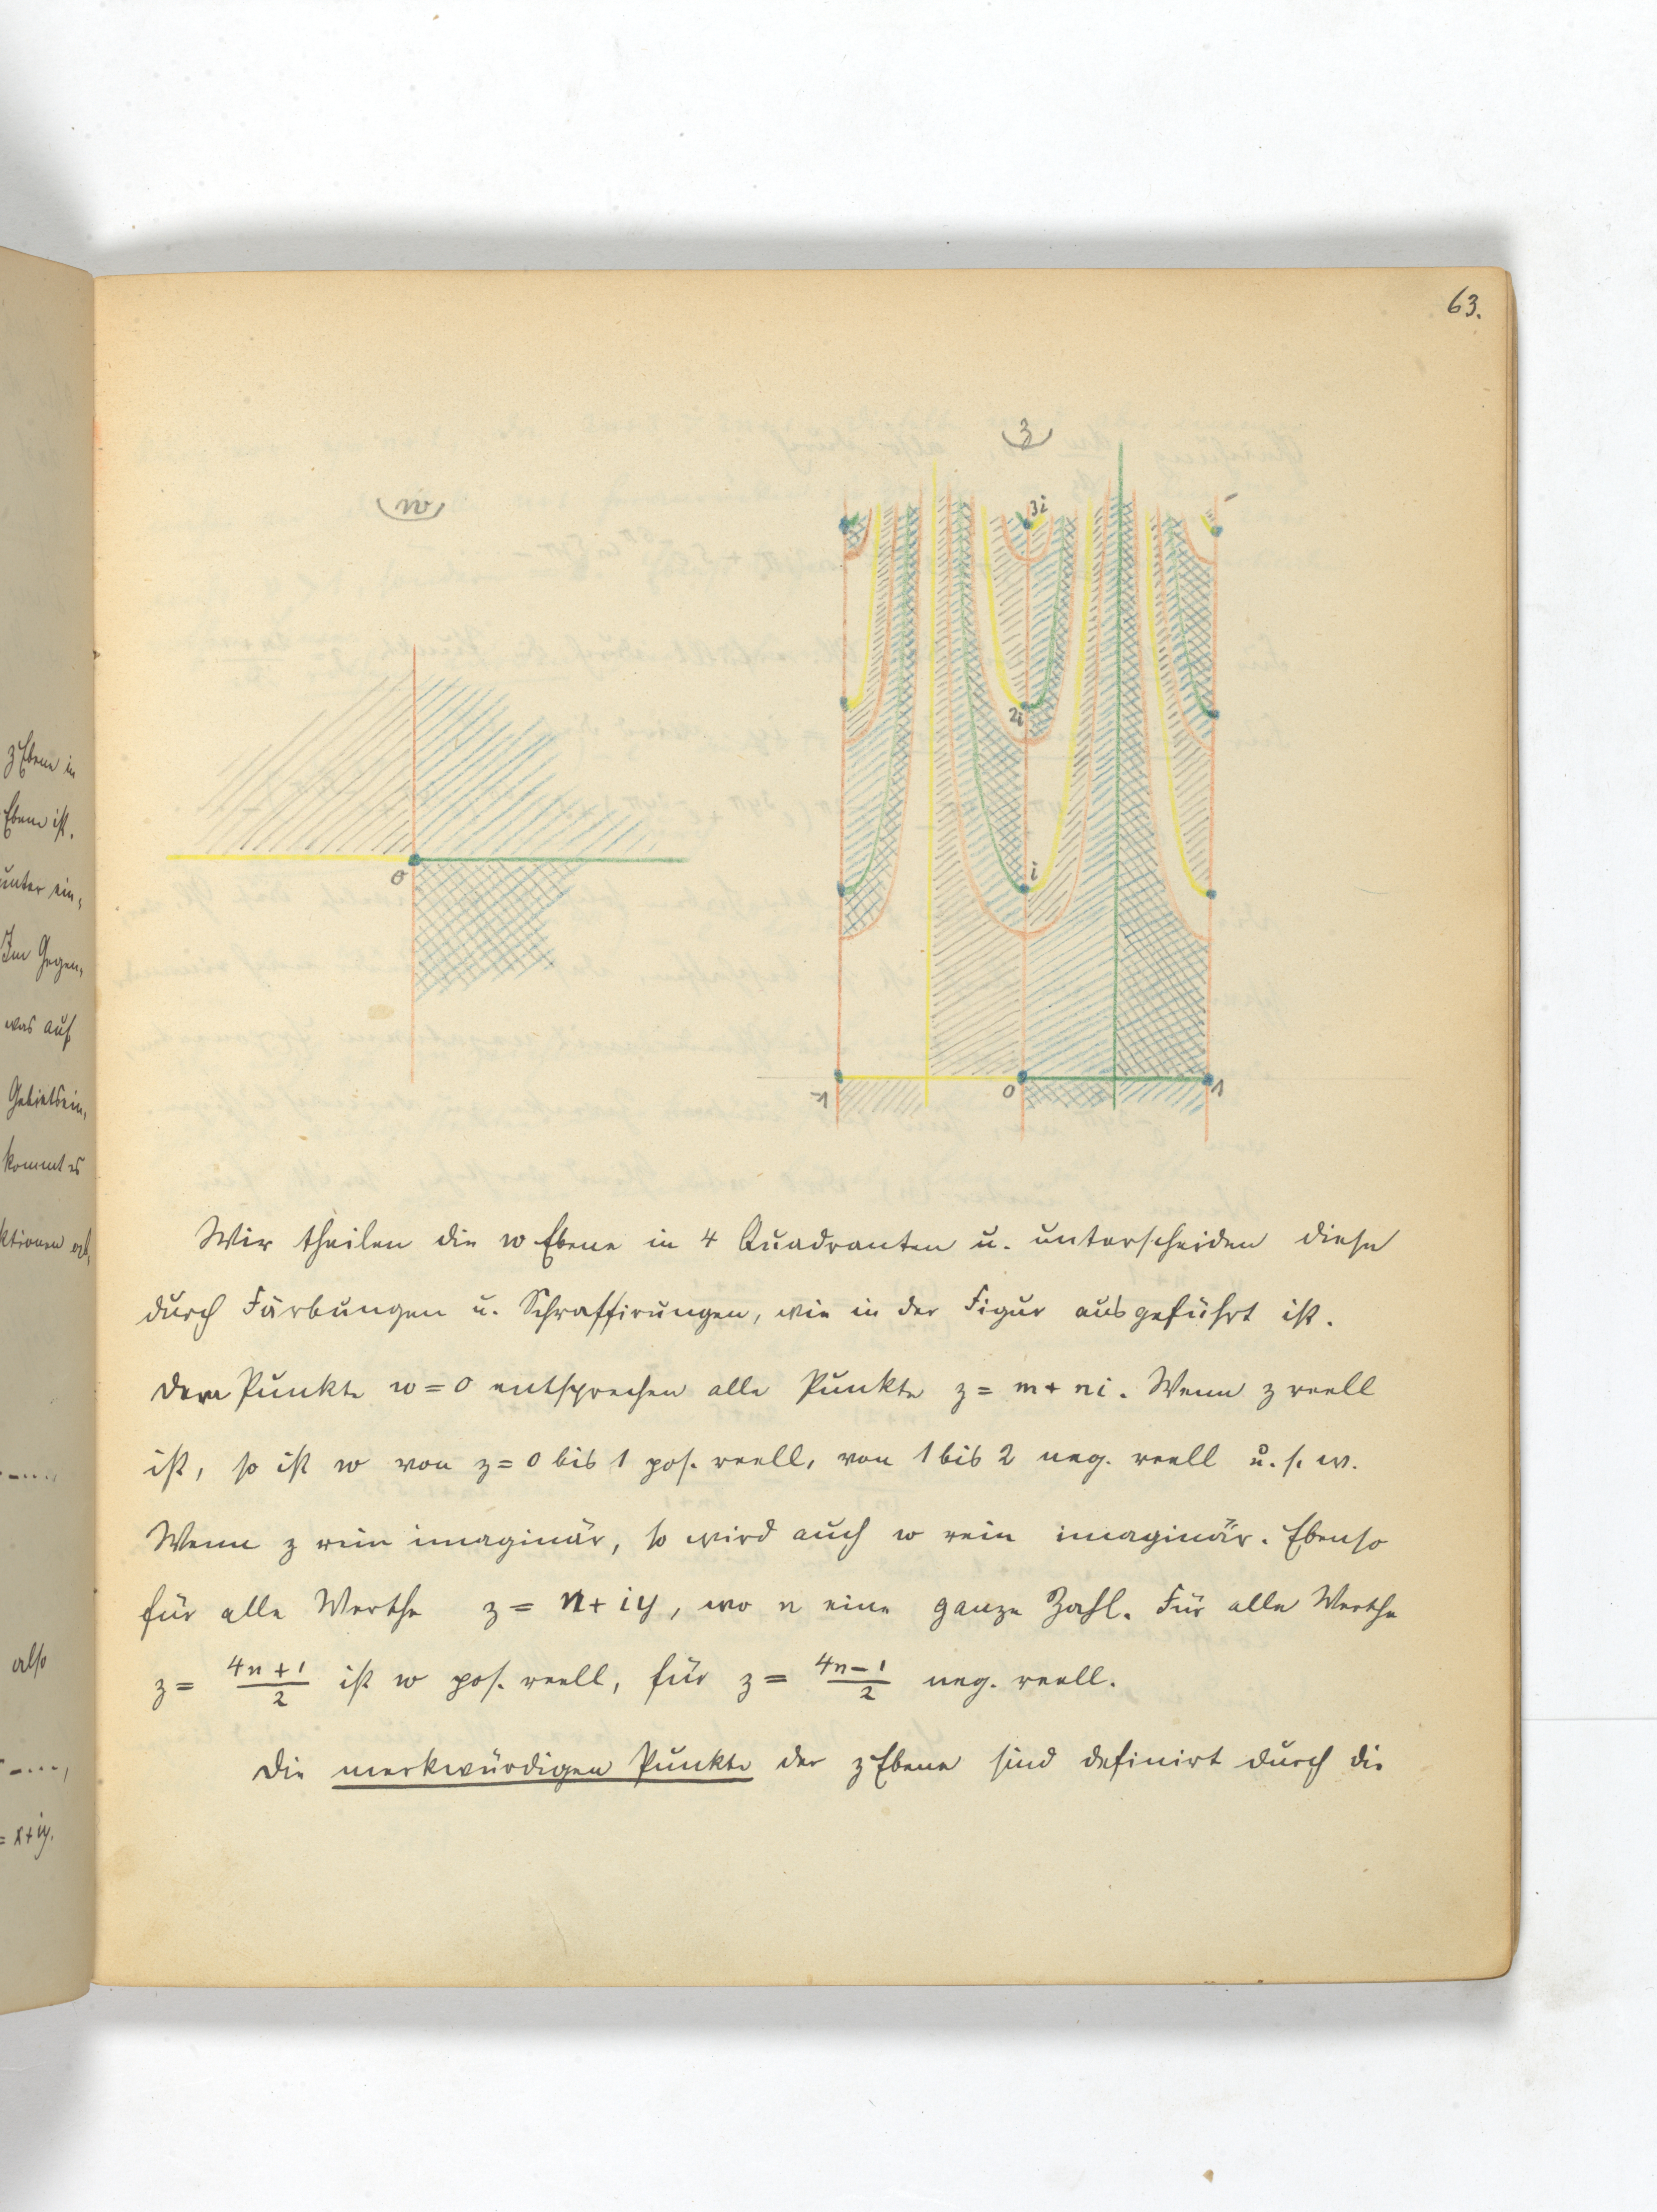 z Ebene in
Ebene ist.
unter ein,
Im Gegen,
was auf
Gebietsein,
kommt es
ktionen
also
= x+iy.
63.
w
z
3i
2i
i
0
-1
0
1
Wir theilen die w Ebene in 4 Quadranten u. unterscheiden diese
durch Färbungen u. Schraffirungen, wie in der Figur ausgeführt ist.
Dem Punkte w = 0 entsprechen alle Punkte z = m + ni. Wenn z reell
ist, so ist w von z = 0 bis 1 pos. reell, von 1 bis 2 neg. reell u. s. w.
Wenn z rein imaginär, so wird auch w rein imaginär. Ebenso
für alle Werthe z = n + iy, wo n eine ganze Zahl. Für alle Werthe
z = (4n + 1)/2 ist w pos. reell, für z = (4n − 1)/2 neg. reell.
Die merkwürdigen Punkte der z Ebene sind definirt durch die